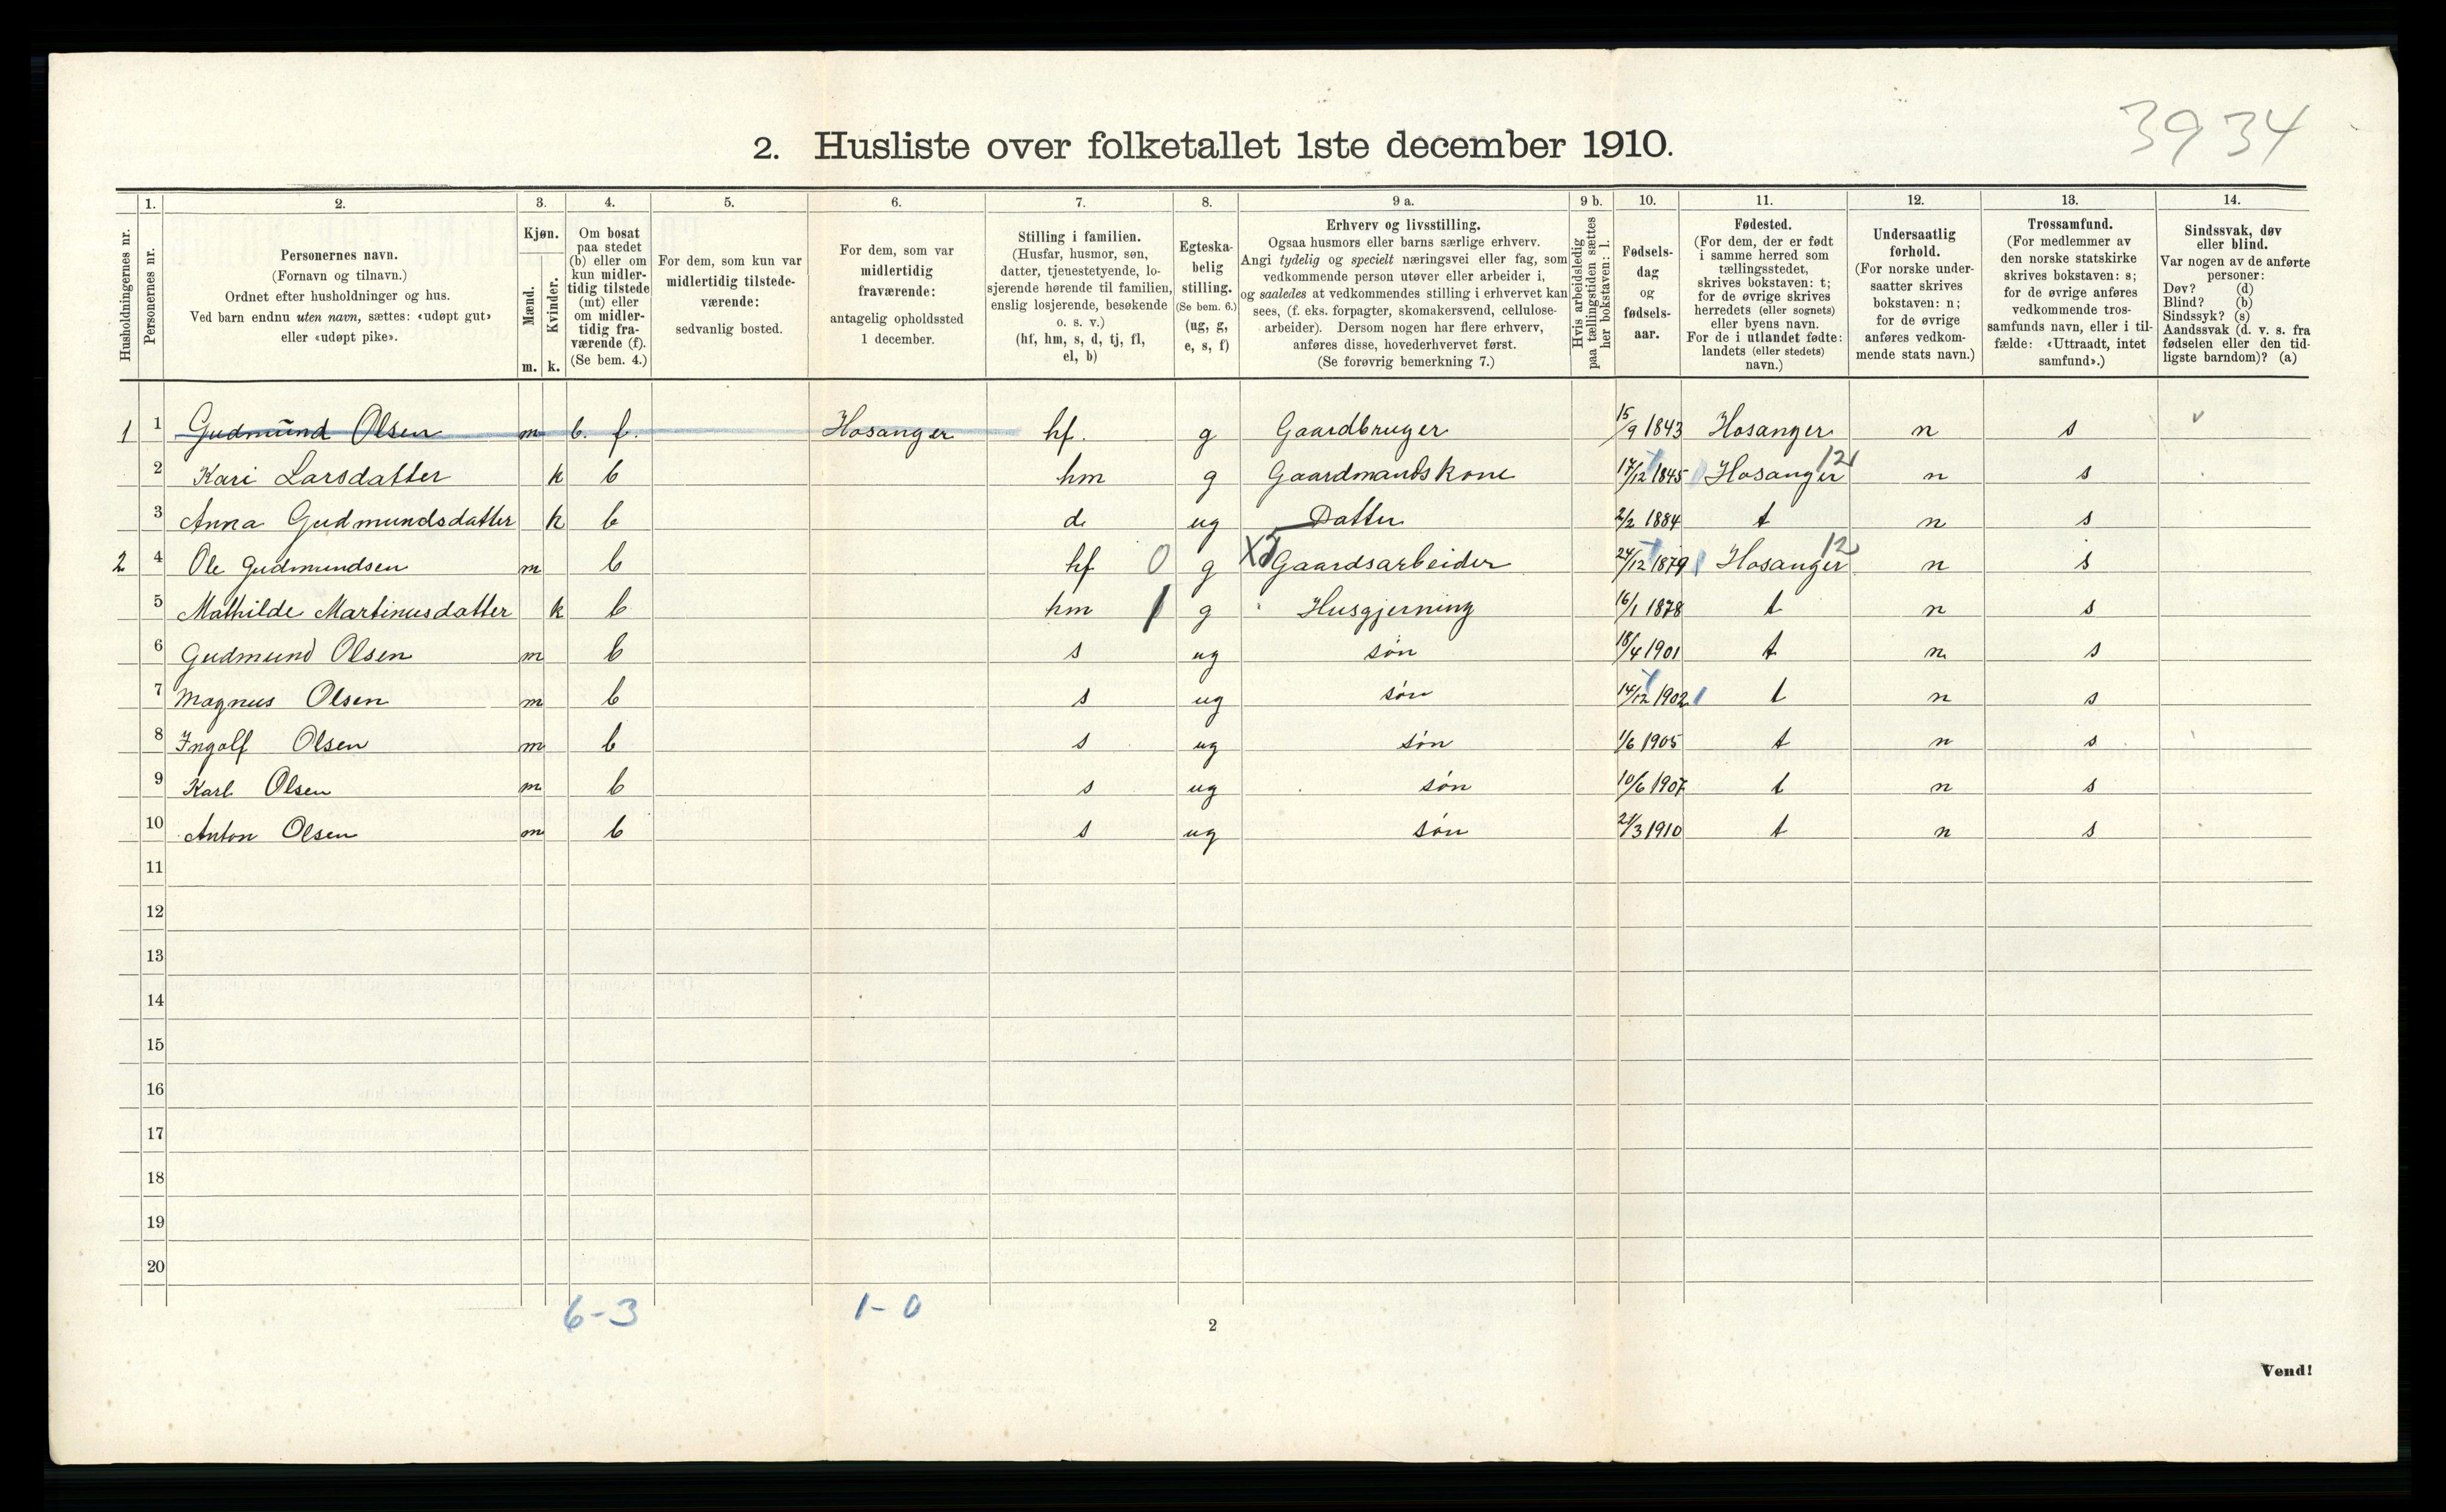 3934
2. Husliste over folketallet 1ste december 1910.
1. 2. 3. 4. 5. 6. 7. 8. 9 a. 9 b. 10. 11. 12. 13. 14.
Husholdningernes nr.
Personernes nr.
Personernes navn.
(Fornavn og tilnavn.)
Ordnet efter husholdninger og hus.
Ved barn endnu uten navn, sættes: «udøpt gut»
eller «udøpt pike».
Kjøn.
Mænd.
Kvinder.
m. k.
Om bosat
paa stedet
(b) eller om
kun midler-
tidig tilstede
(mt) eller
om midler-
tidig fra-
værende (f).
(Se bem. 4.)
For dem, som kun var
midlertidig tilstede-
værende:
sedvanlig bosted.
For dem, som var
midlertidig
fraværende:
antagelig opholdssted
1 december.
Stilling i familien.
(Husfar, husmor, søn,
datter, tjenestetyende, lo-
sjerende hørende til familien,
enslig losjerende, besøkende
o. s. v.)
(hf, hm, s, d, tj, fl,
el, b)
Egteska-
belig
stilling.
(Se bem. 6.)
(ug, g,
e, s, f)
Erhverv og livsstilling.
Ogsaa husmors eller barns særlige erhverv.
Angi tydelig og specielt næringsvei eller fag, som
vedkommende person utøver eller arbeider i,
og saaledes at vedkommendes stilling i erhvervet kan
sees, (f. eks. forpagter, skomakersvend, cellulose-
arbeider). Dersom nogen har flere erhverv,
anføres disse, hovederhvervet først.
(Se forøvrig bemerkning 7.)
Hvis arbeidsledig
paa tællingstiden sættes
her bokstaven: l.
Fødsels-
dag
og
fødsels-
aar.
Fødested.
(For dem, der er født
i samme herred som
tællingsstedet,
skrives bokstaven: t;
for de øvrige skrives
herredets (eller sognets)
eller byens navn.
For de i utlandet fødte:
landets (eller stedets)
navn.)
Undersaatlig
forhold.
(For norske under-
saatter skrives
bokstaven: n;
for de øvrige
anføres vedkom-
mende stats navn.)
Trossamfund.
(For medlemmer av
den norske statskirke
skrives bokstaven: s;
for de øvrige anføres
vedkommende tros-
samfunds navn, eller i til-
fælde: «Uttraadt, intet
samfund».)
Sindssvak, døv
eller blind.
Var nogen av de anførte
personer:
Døv? (d)
Blind? (b)
Sindssyk? (s)
Aandssvak (d. v. s. fra
fødselen eller den tid-
ligste barndom)? (a)
1 1 Gudmund Olsen m b. f. Hosanger hf. g Gaardbruger 15/9 1843 Hosanger n s v
2 Kari Larsdatter k b hm g Gaardmandskone 17/12 1845 Hosanger 12 n s
3 Anna Gudmundsdatter k b d ug Datter 2/2 1884 t n s
2 4 Ole Gudmundsen m b hf 0 g Gaardsarbeider 24/12 1879 Hosanger 12 n s
5 Mathilde Martinusdatter k b hm 1 g Husgjerning 16/1 1878 t n s
6 Gudmund Olsen m b s ug søn 18/4 1901 t n s
7 Magnus Olsen m b s ug søn 14/12 1902 t n s
8 Ingolf Olsen m b s ug søn 1/6 1905 t n s
9 Karl Olsen m b s ug søn 10/6 1907 t n s
10 Anton Olsen m b s ug søn 21/3 1910 t n s
11
12
13
14
15
16
17
18
19
20
6-3 1-0
2
Vend!